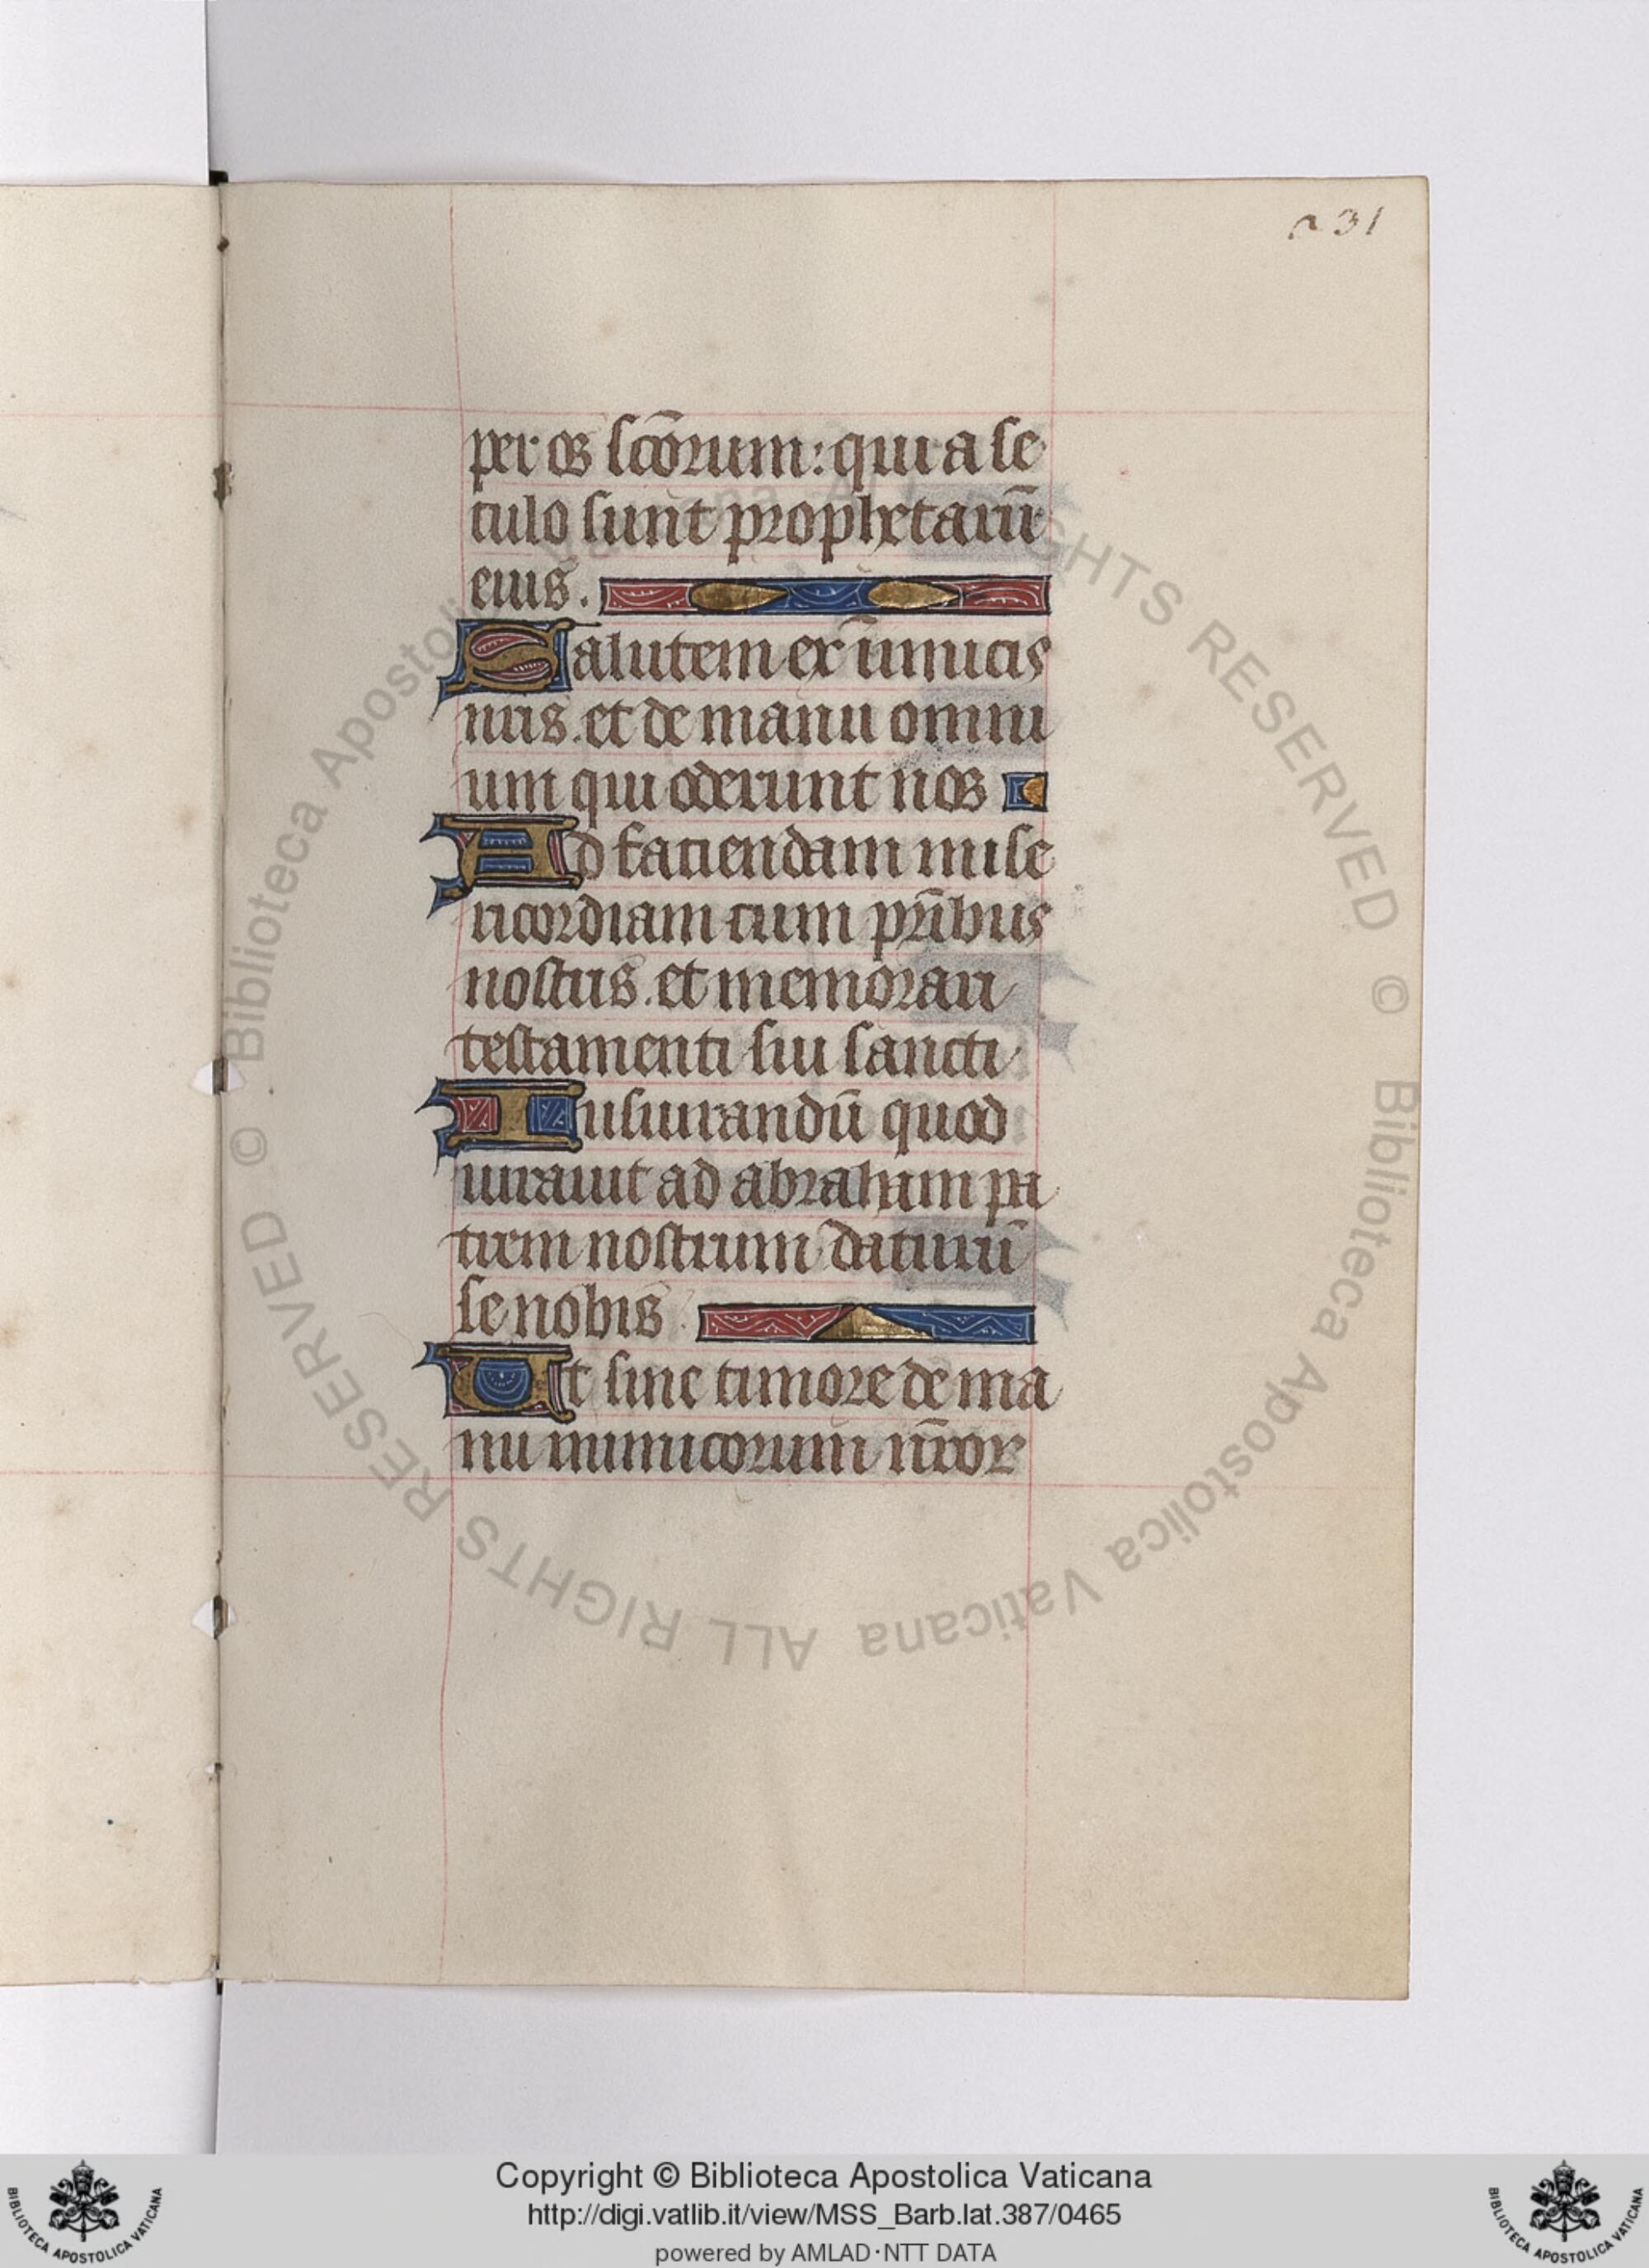 231
per os scōrum: qui a se
culo sunt prophetarū
eius.
Salutem ex inimicis
nr̄is. et de manu omni
um qui oderunt nos
Ad faciendam mise
ricordiam cum pr̄ibus
nostris. et memorari
testamenti sui sancti
Iusiurandū quod
iurauit ad abraham pa
trem nostrum daturū
se nobis.
Ut sine timore de ma
nu inimicorum nr̄orꝝ
© Biblioteca Apostolica Vaticana ALL RIGHTS RESERVED © Biblioteca Apostolica Vaticana ALL RIGHTS RESERVED
Copyright © Biblioteca Apostolica Vaticana
http://digi.vatlib.it/view/MSS_Barb.lat.387/0465
powered by AMLAD·NTT DATA
BIBLIOTECA APOSTOLICA VATICANA
BIBLIOTECA APOSTOLICA VATICANA